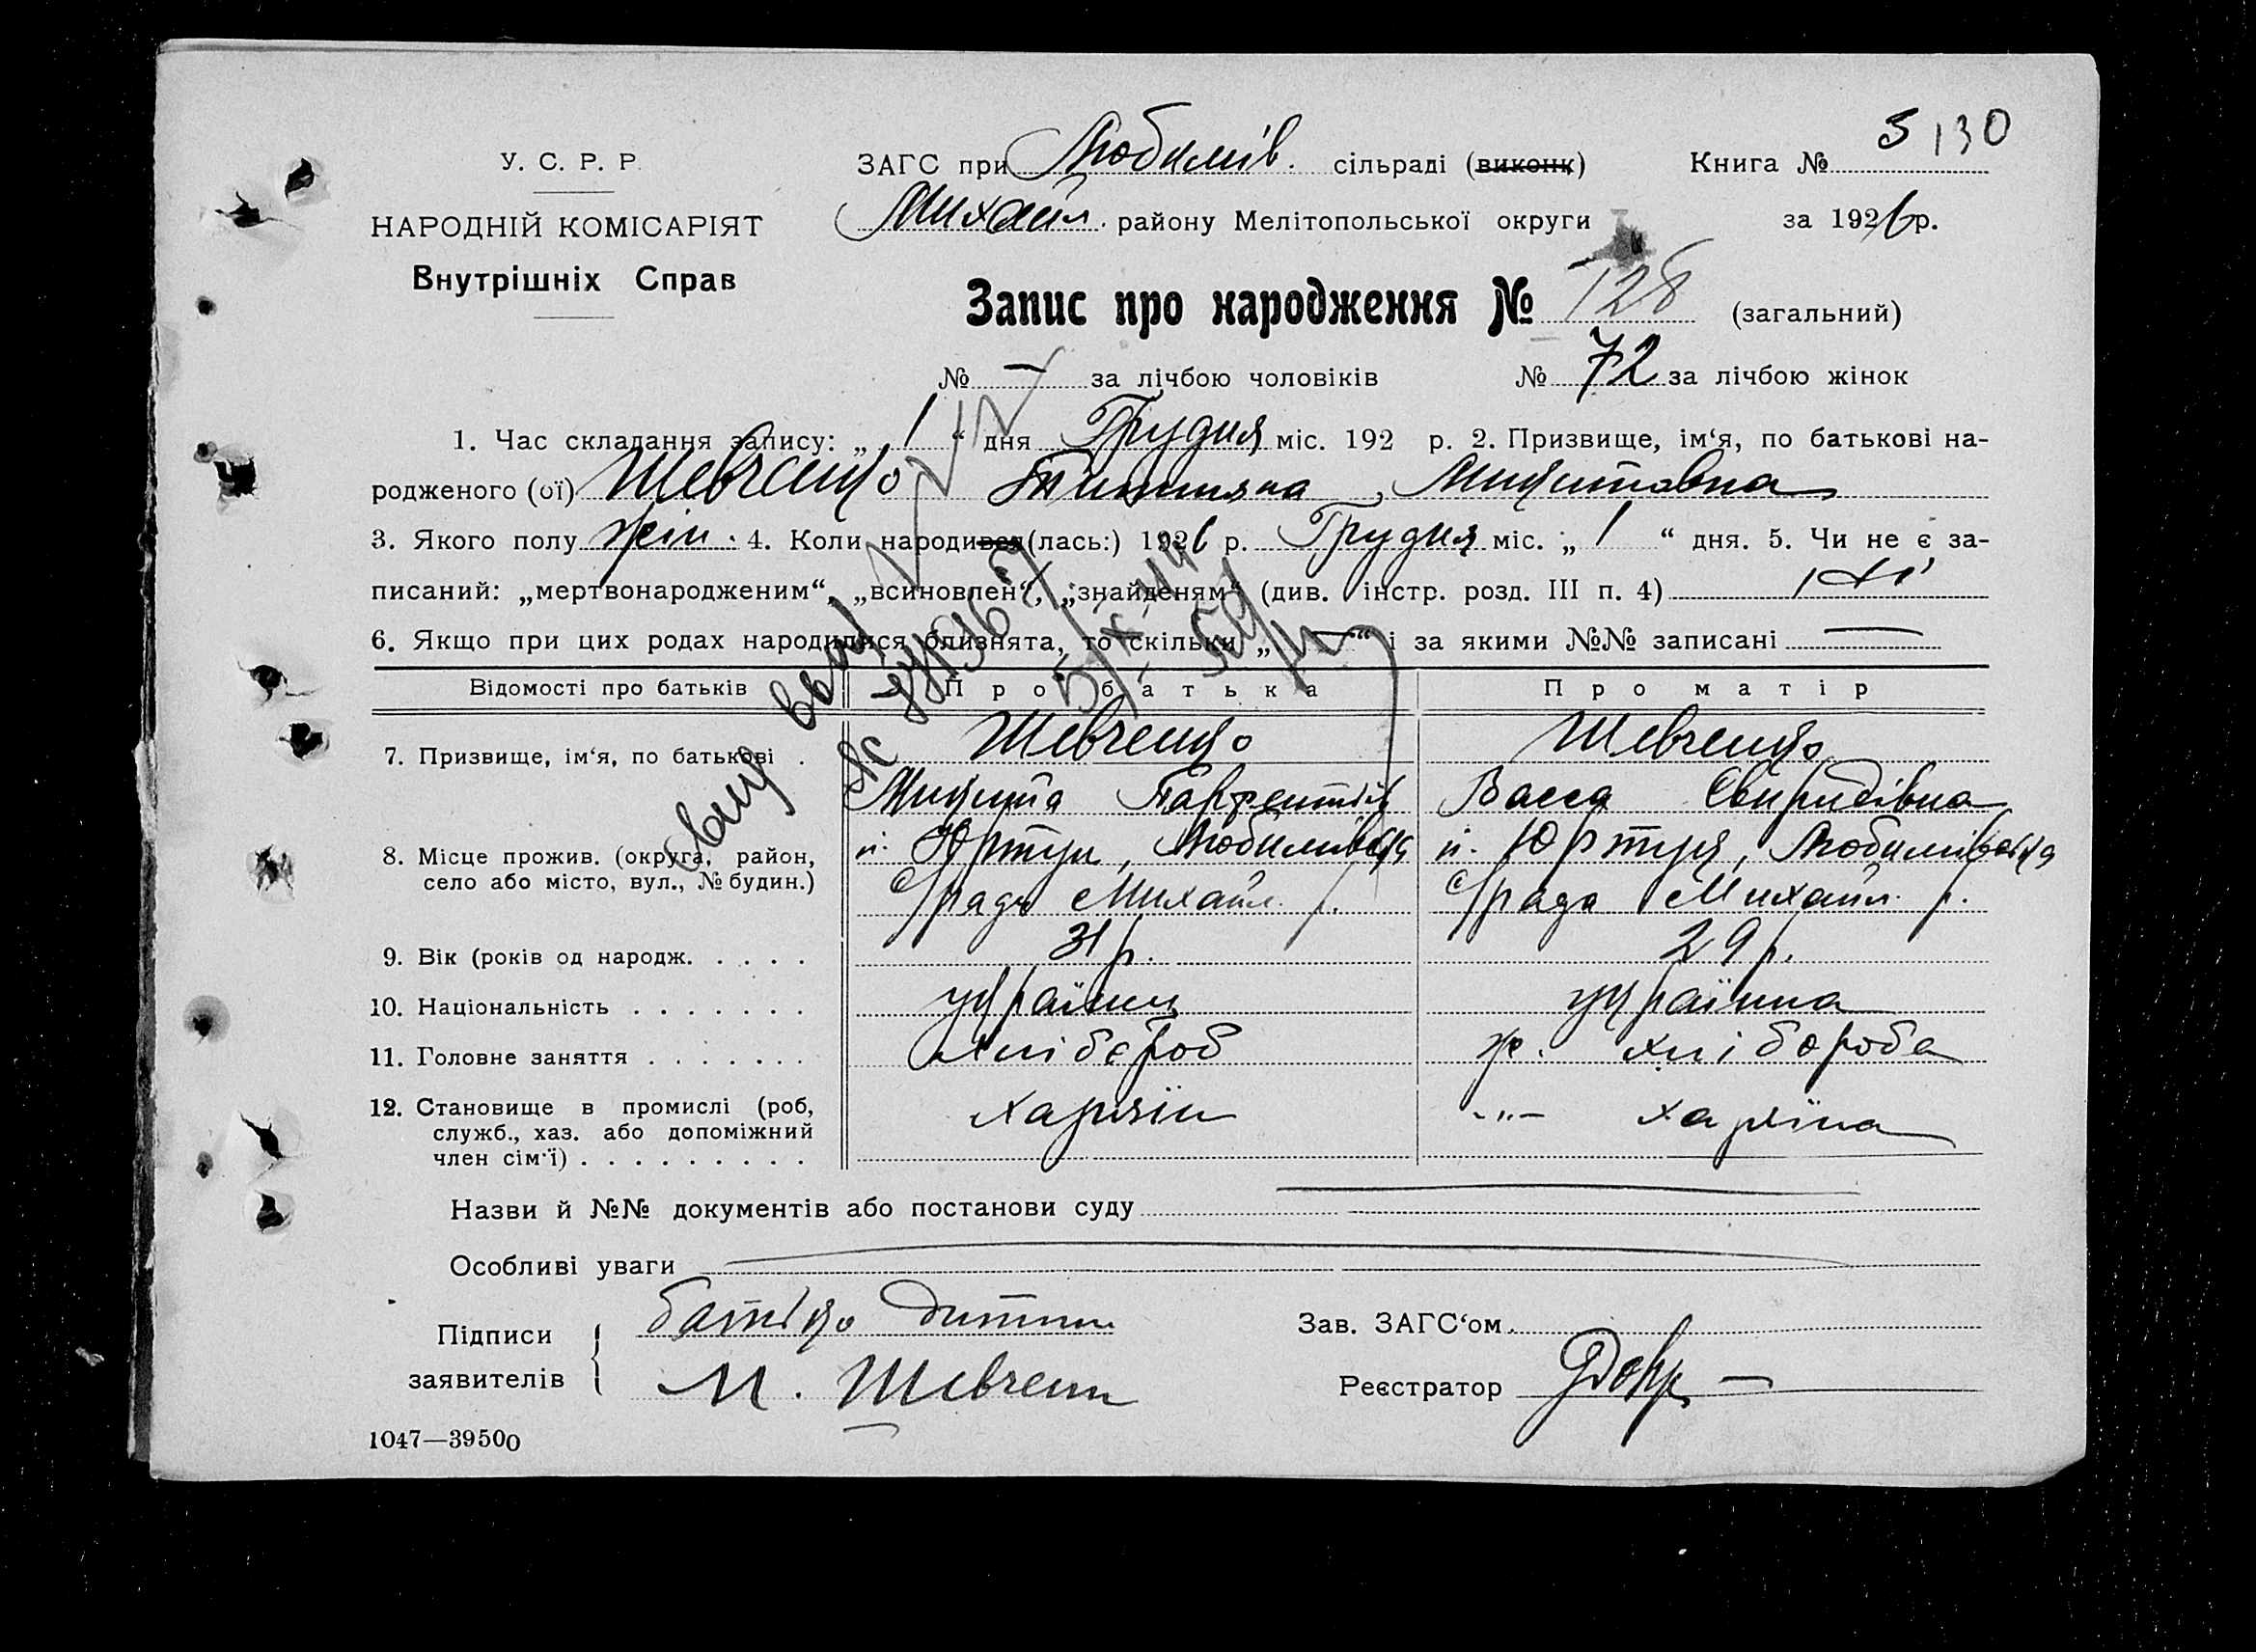 5 130
У. С. Р. Р. ЗАГС при Любимів. сільраді (виконк) Книга №
НАРОДНІЙ КОМІСАРІЯТ Михайл. району Мелітопольської округи за 1926 р.
Внутрішніх Справ
Запис про народження № 128 (загальний)
№ — за лічбою чоловіків № 72 за лічбою жінок
1. Час складання запису: „ 1 “ дня Грудня міс. 192 р. 2. Призвище, ім‘я, по батькові на-
родженого (ої) Шевченко Микитовна
3. Якого полу жін. 4. Коли народився (лась:) 1926 р. Грудня міс. „ 1 “ дня. 5. Чи не є за-
писаний: „мертвонародженим“, „всиновлен“, „знайденям“ (див. інстр. розд. III п. 4) ні
6. Якщо при цих родах народилися близнята, то скільки „ — “ і за якими №№ записані —
Відомості про батьків Про батька Про матір
7. Призвище, ім‘я, по батькові . Шевченко Шевченко
Микита Парфентіїв Васса Свиридівна
8. Місце прожив. (округа, район, село або місто, вул., № будин.) Любимівська Любимівська
с/рада Михайл. р. с/рада Михайл. р.
9. Вік (років од народж. . . . . 31 р. 29 р.
10. Національність . . . . . . . українец українка
11. Головне заняття . . . . . . . хлібороб ж. хлібороба
12. Становище в промислі (роб, хазяїн -"- хазяїна
служб., хаз. або допоміжний
член сім‘ї) . . . . . . . . .
Назви й №№ документів або постанови суду
Особливі уваги
Підписи заявителів батько дитини
М. Шевченко
Зав. ЗАГС‘ом
Реєстратор
1047—39500